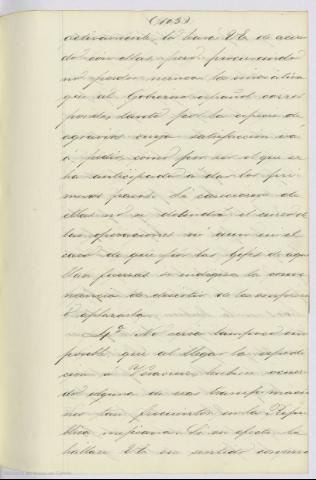 (103)
activamente, lo hará V.E. de acuer
do con ellas, pero procurando
no perder nunca la iniciativa
que al Gobierno español corres
ponde, tanto por la especie de
agravios cuya satisfacción vá
á pedir, como por ser el que se
ha anticipado á dar los pri
meros pasos. Si careciese de
ellas no se detendrá el curso de
las operaciones ni aun en el
caso de que por los Gefes de aque
llas fuerzas se indique la conve
niencia de desistir de la empresa
ó aplazarla.
4ª. No sería tampoco im
posible que al llegar la expedi
ción á Veracruz hubiera ocurri
do alguna de esas transformacio
nes tan frecuentes en la Repú
blica mejicana. Si en efecto la
hallase V.E. en sentido conserva